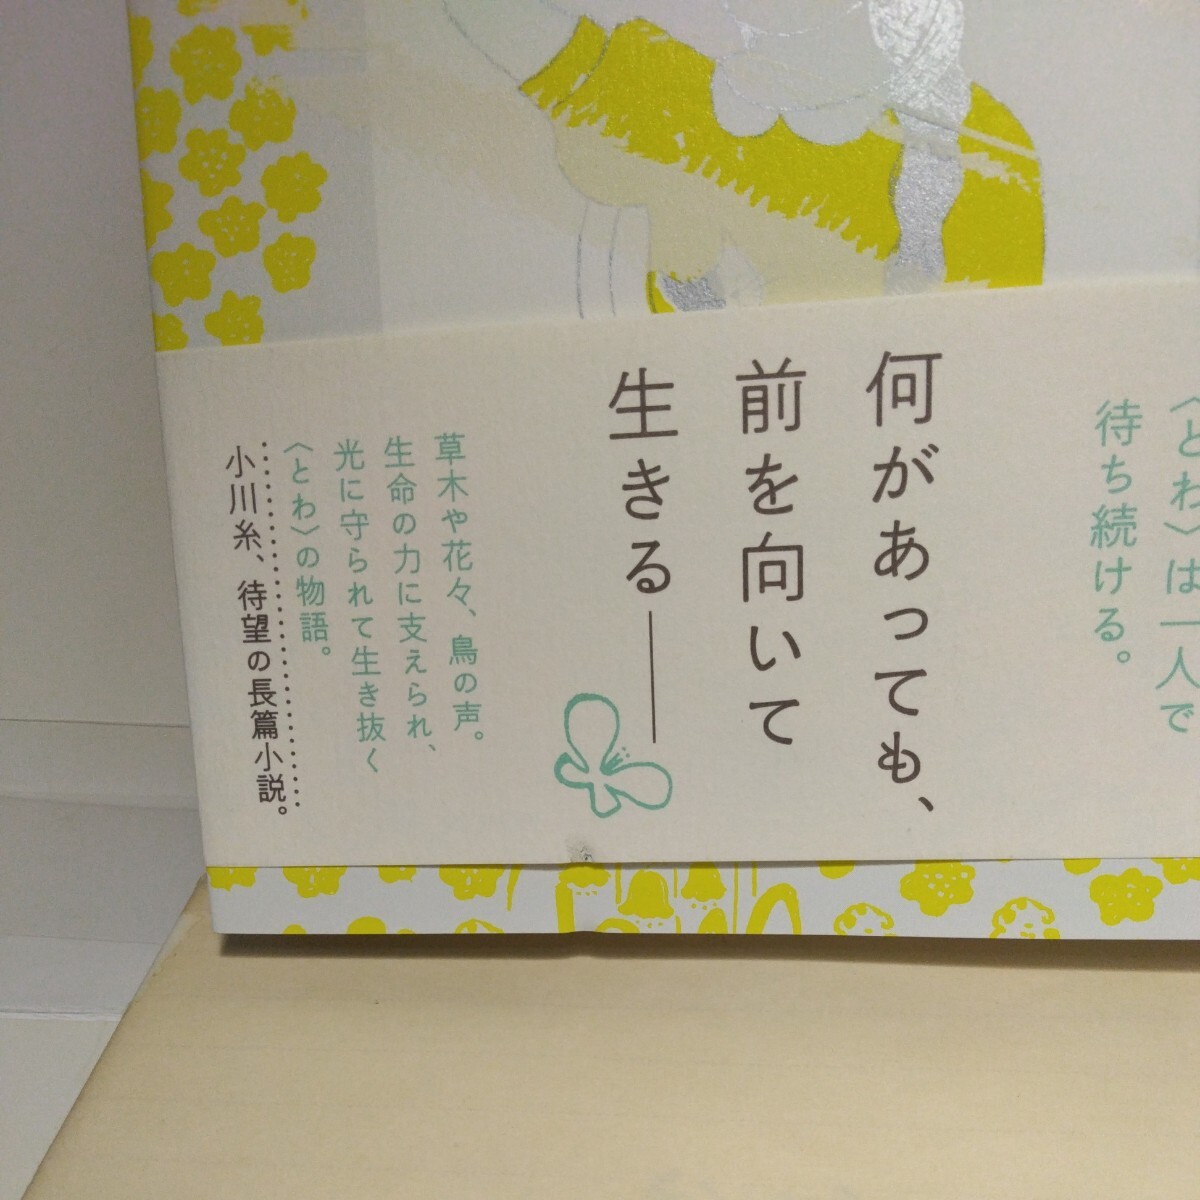 〈とわ〉は一人で
待ち続ける。
何があっても、
前を向いて
生きる――
草木や花々、鳥の声。
生命の力に支えられ、
光に守られて生き抜く
〈とわ〉の物語。
小川糸、待望の長篇小説。